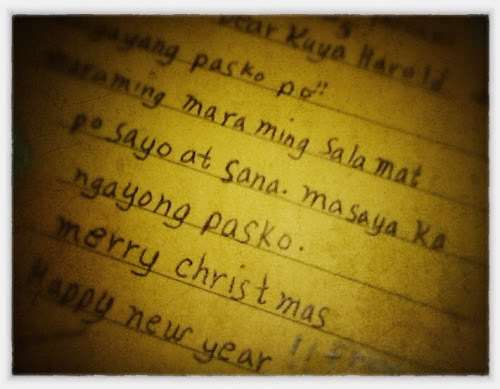 Dear Kuya Harold
pasko po!!
maraming maraming salamat
po sayo at sana. masaya ka
ngayong pasko.
merry christmas
Happy new year !! from